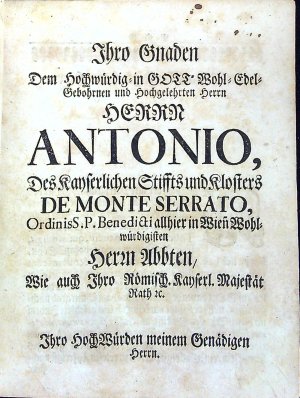 Ihro Gnaden
Dem Hochwürdig-in GOTT Wohl-Edel-
Gebohrnen und Hochgelehrten Herrn
HERRN
ANTONIO,
Des Kayserlichen Stiffts und Klosters
DE MONTE SERRATO,
Ordinis S. P. Benedicti allhier in Wien̄ Wohl-
würdigisten
Herrn Abbten,
Wie auch Ihro Römisch. Kayserl. Majestät
Rath ꝛc.
Ihro HochWürden meinem Genädigen
Herrn.